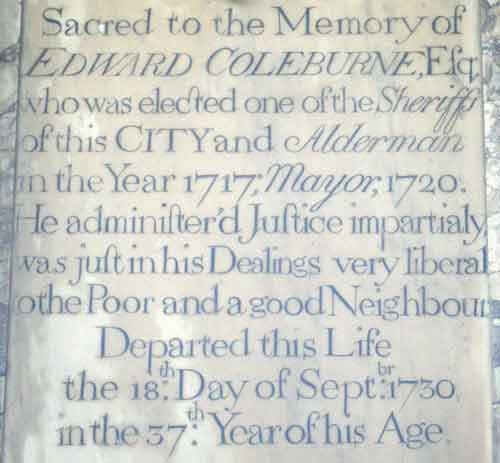 Sacred to the Memory of
EDWARD COLEBURNE, Esq
who was elected one of the Sheriffs
of this CITY and Alderman
in the Year 1717; Mayor, 1720.
He adminiſter'd Juſtice impartialy,
was juſt in his Dealings very liberal
to the Poor and a good Neighbour
Departed this Life
the 18.th Day of Sept.br 1730,
in the 37.th Year of his Age.